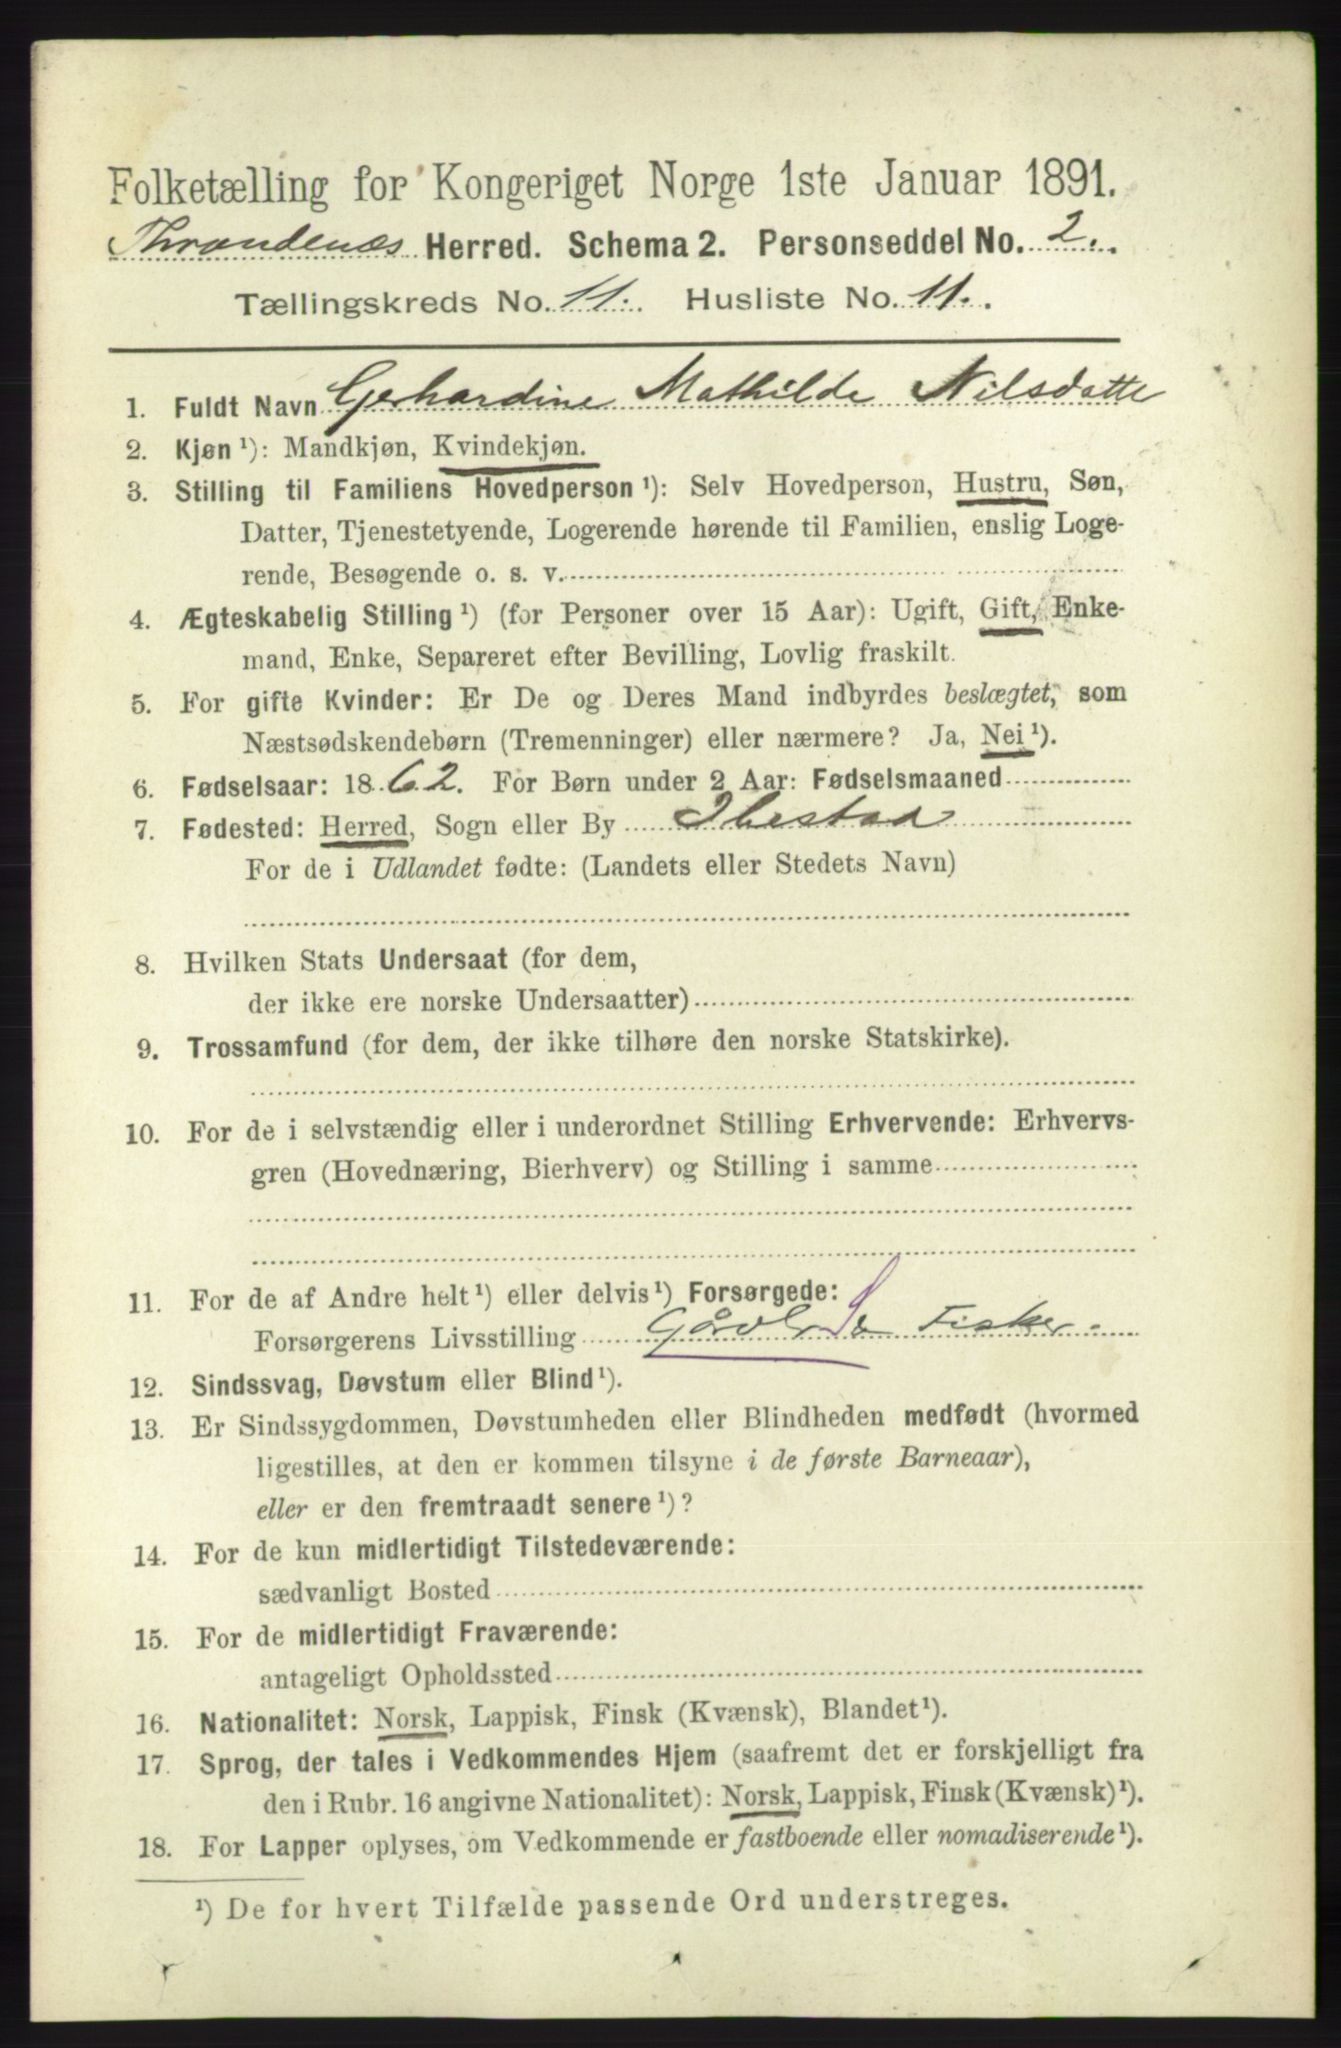 Folketælling for Kongeriget Norge 1ste Januar 1891.
Throndenæs Herred. Schema 2. Personseddel No. 2.
Tællingskreds No. 11. Husliste No. 11.
1. Fuldt Navn Gerhardine Mathilde Nilsdatte
2. Kjøn ¹): Mandkjøn, Kvindekjøn.
3. Stilling til Familiens Hovedperson ¹): Selv Hovedperson, Hustru, Søn,
Datter, Tjenestetyende, Logerende hørende til Familien, enslig Loge-
rende, Besøgende o. s. v.
4. Ægteskabelig Stilling ¹) (for Personer over 15 Aar): Ugift, Gift, Enke-
mand, Enke, Separeret efter Bevilling, Lovlig fraskilt.
5. For gifte Kvinder: Er De og Deres Mand indbyrdes beslægtet, som
Næstsødskendebørn (Tremenninger) eller nærmere? Ja, Nei ¹).
6. Fødselsaar: 1862. For Børn under 2 Aar: Fødselsmaaned
7. Fødested: Herred, Sogn eller By Ibestad
For de i Udlandet fødte: (Landets eller Stedets Navn)
8. Hvilken Stats Undersaat (for dem,
der ikke ere norske Undersaatter)
9. Trossamfund (for dem, der ikke tilhøre den norske Statskirke).
10. For de i selvstændig eller i underordnet Stilling Erhvervende: Erhvervs-
gren (Hovednæring, Bierhverv) og Stilling i samme
11. For de af Andre helt ¹) eller delvis ¹) Forsørgede:
Forsørgerens Livsstilling Gårdbr & Fisker.
12. Sindssvag, Døvstum eller Blind ¹).
13. Er Sindssygdommen, Døvstumheden eller Blindheden medfødt (hvormed
ligestilles, at den er kommen tilsyne i de første Barneaar),
eller er den fremtraadt senere ¹)?
14. For de kun midlertidigt Tilstedeværende:
sædvanligt Bosted
15. For de midlertidigt Fraværende:
antageligt Opholdssted
16. Nationalitet: Norsk, Lappisk, Finsk (Kvænsk), Blandet ¹).
17. Sprog, der tales i Vedkommendes Hjem (saafremt det er forskjelligt fra
den i Rubr. 16 angivne Nationalitet): Norsk, Lappisk, Finsk (Kvænsk) ¹).
18. For Lapper oplyses, om Vedkommende er fastboende eller nomadiserende ¹).
¹) De for hvert Tilfælde passende Ord understreges.